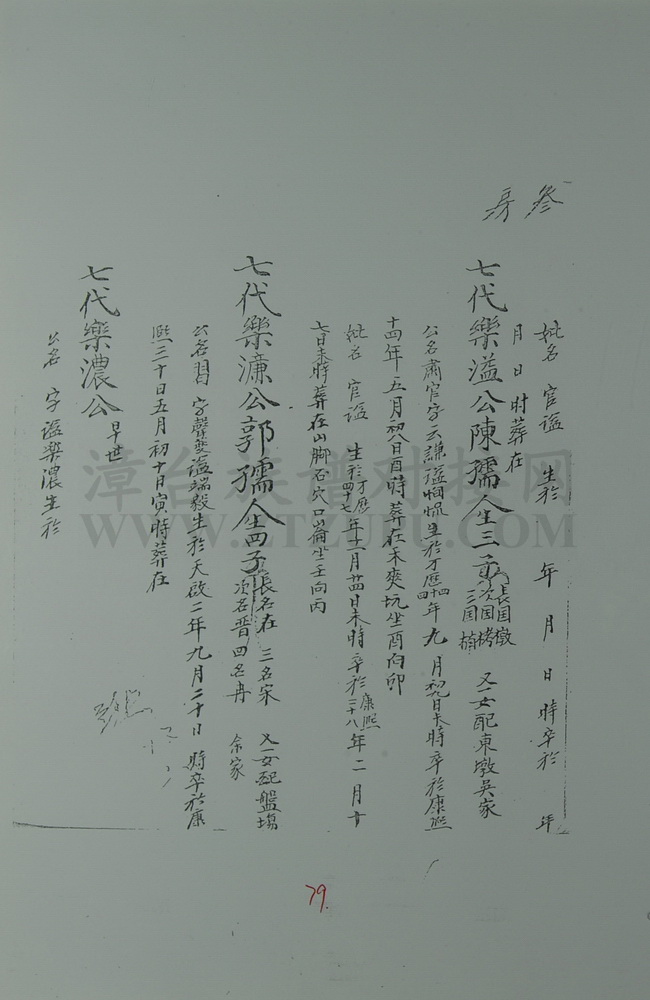 叁房
妣名 官谥 生於 年 月 日 時卒於 年
月 日 時葬在
七代樂溢公陳孺人生三子 長国 次国 三国 又一女配東墩吳家
公名肅官字云謙谥 生於万历 四年九月初九日未時卒於康熙
十四年五月初八日酉時葬在禾爽坑坐酉向卯
妣名 官谥 生於万历四十七年十一月廿四日未時卒於康熙二十八年二月廿
七日未時葬在山脚石穴口崙坐壬向丙
七代樂濂公郭孺人生四子 長名在 次名晋 三名宋 四名冉 又一女配盤塲余家
公名習 字聲变谥端毅生於天啟二年九月二十日時卒於康
熙三十日五月初十日寅時葬在
七代樂濃公早世
公名 字谥樂濃生於
79.
漳台族谱对接网
WWW.ZTZUPU.COM